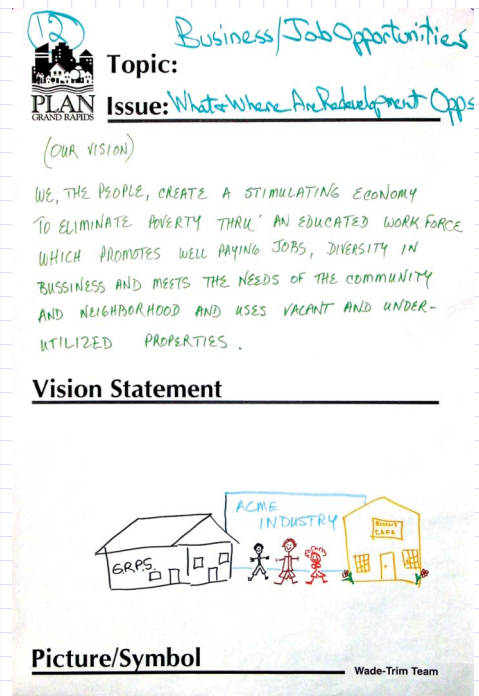 12
Business/Job Opportunities
Topic:
PLAN
GRAND RAPIDS
Issue: What & Where Are Redevelopment Opps
(OUR VISION)
WE, THE PEOPLE, CREATE A STIMULATING ECONOMY
TO ELIMINATE POVERTY THRU' AN EDUCATED WORK FORCE
WHICH PROMOTES WELL PAYING JOBS, DIVERSITY IN
BUSSINESS AND MEETS THE NEEDS OF THE COMMUNITY
AND NEIGHBORHOOD AND USES VACANT AND UNDER-
UTILIZED PROPERTIES.
Vision Statement
ACME
INDUSTRY
CAFE
G.R.P.S.
Picture/Symbol
Wade-Trim Team